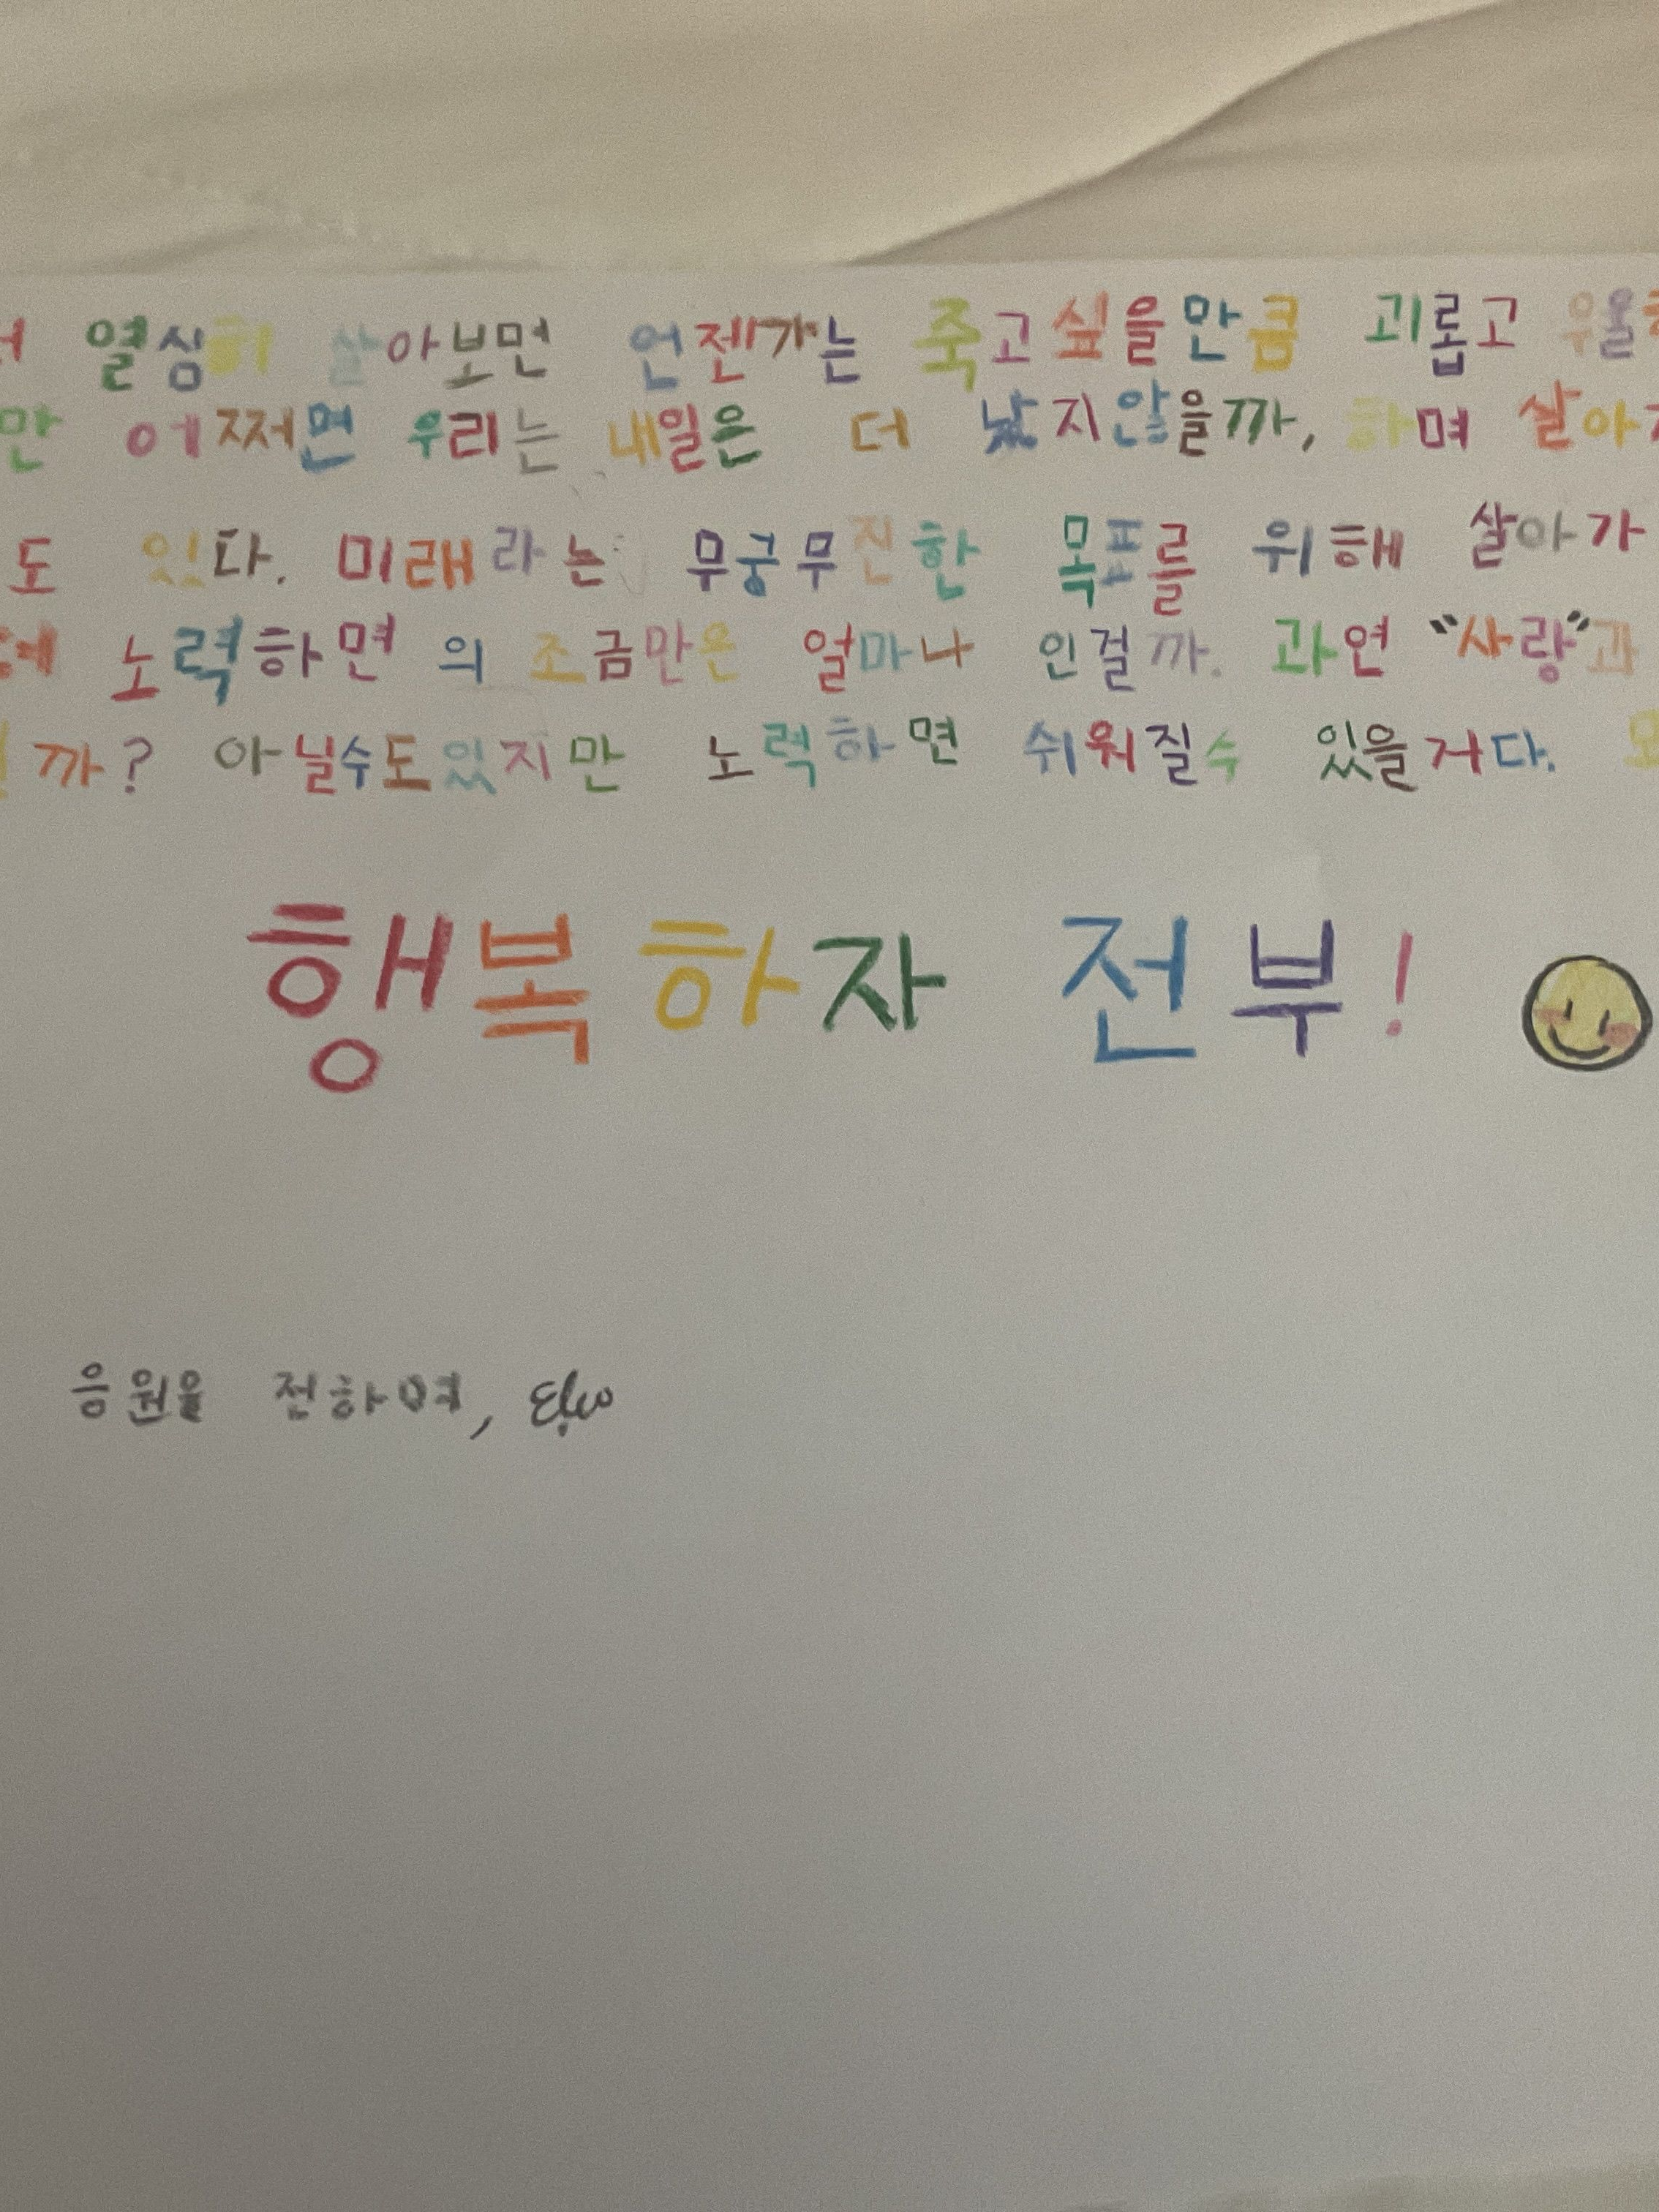 열심히 살아보면 언젠가는 죽고싶을만큼 괴롭고 우울
만 어쩌면 우리는 내일은 더 낫지않을까, 하며 살아
도 있다. 미래라는 무궁무진한 목표를 위해 살아가
노력하면 의 조금만은 얼마나 인걸까. 과연 “사랑”과
까? 아닐수도있지만 노력하면 쉬워질수 있을거다.
행복하자 전부!
응원을 전하며,